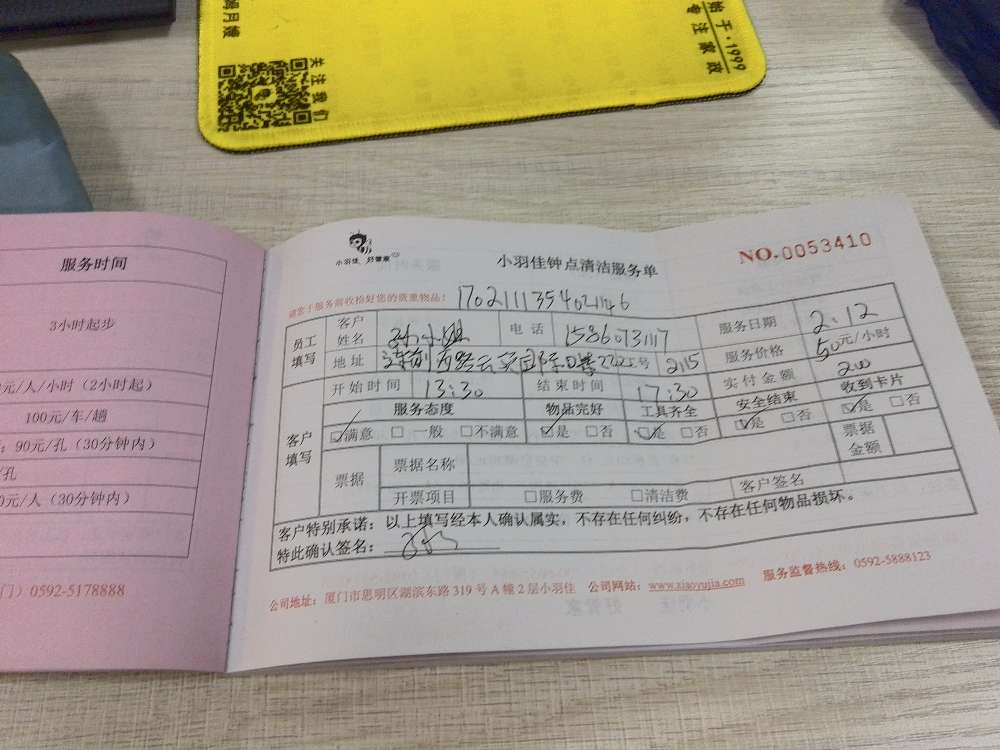 月嫂
关注我们
始于·1999
专注家政
服务时间
3小时起步
元/人/小时（2小时起）
100元/车/趟
：90元/孔（30分钟内）
/孔
0元/人（30分钟内）
门）0592-5178888
小羽佳 好管家
小羽佳钟点清洁服务单
NO.0053410
请您于服务前收拾好您的贵重物品：
员工填写
客户姓名
电话
服务日期 2.12
地址 号 2215
服务价格 50元/小时
开始时间 13:30 结束时间 17:30 实付金额 200
客户填写
服务态度 物品完好 工具齐全 安全结束 收到卡片
☑满意 □一般 □不满意 ☑是 □否 ☑是 □否 ☑是 □否 ☑是 □否
票据 票据名称 票据金额
开票项目 □服务费 □清洁费 客户签名
客户特别承诺：以上填写经本人确认属实，不存在任何纠纷，不存在任何物品损坏。
特此确认签名：
公司地址：厦门市思明区湖滨东路319号A幢2层小羽佳 公司网站：www.xiaoyujia.com 服务监督热线：0592-5888123